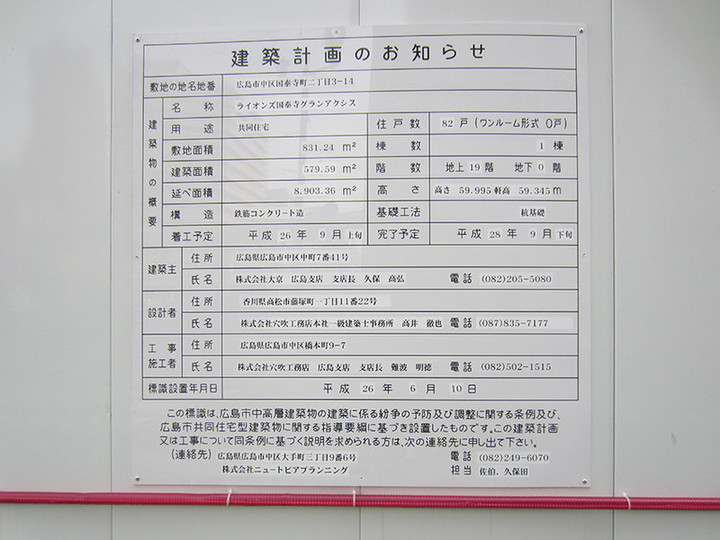 建築計画のお知らせ
敷地の地名地番 広島市中区国泰寺町二丁目3-14
建築物の概要
名称 ライオンズ国泰寺グランアクシス
用途 共同住宅 住戸数 82 戸 (ワンルーム形式 0戸)
敷地面積 831.24 m² 棟数 1 棟
建築面積 579.59 m² 階数 地上 19 階 地下 0 階
延べ面積 8,903.36 m² 高さ 高さ 59.995 軒高 59.345 m
構造 鉄筋コンクリート造 基礎工法 杭基礎
着工予定 平成 26 年 9 月 上旬 完了予定 平成 28 年 9 月 下旬
建築主 住所 広島県広島市中区中町7番41号
氏名 株式会社大京 広島支店 支店長 久保 高弘 電話 (082)205-5080
設計者 住所 香川県高松市藤塚町一丁目11番22号
氏名 株式会社穴吹工務店本社一級建築士事務所 高井 徹也 電話 (087)835-7177
工事施工者 住所 広島県広島市中区橋本町9-7
氏名 株式会社穴吹工務店 広島支店 支店長 難波 明徳 電話 (082)502-1515
標識設置年月日 平成 26 年 6 月 10 日
この標識は、広島市中高層建築物の建築に係る紛争の予防及び調整に関する条例及び、
広島市共同住宅型建築物に関する指導要綱に基づき設置したものです。この建築計画
又は工事について同条例に基づく説明を求められる方は、次の連絡先に申し出て下さい。
(連絡先) 広島県広島市中区大手町三丁目9番6号 電話 (082)249-6070
株式会社ニュートピアプランニング 担当 佐伯、久保田